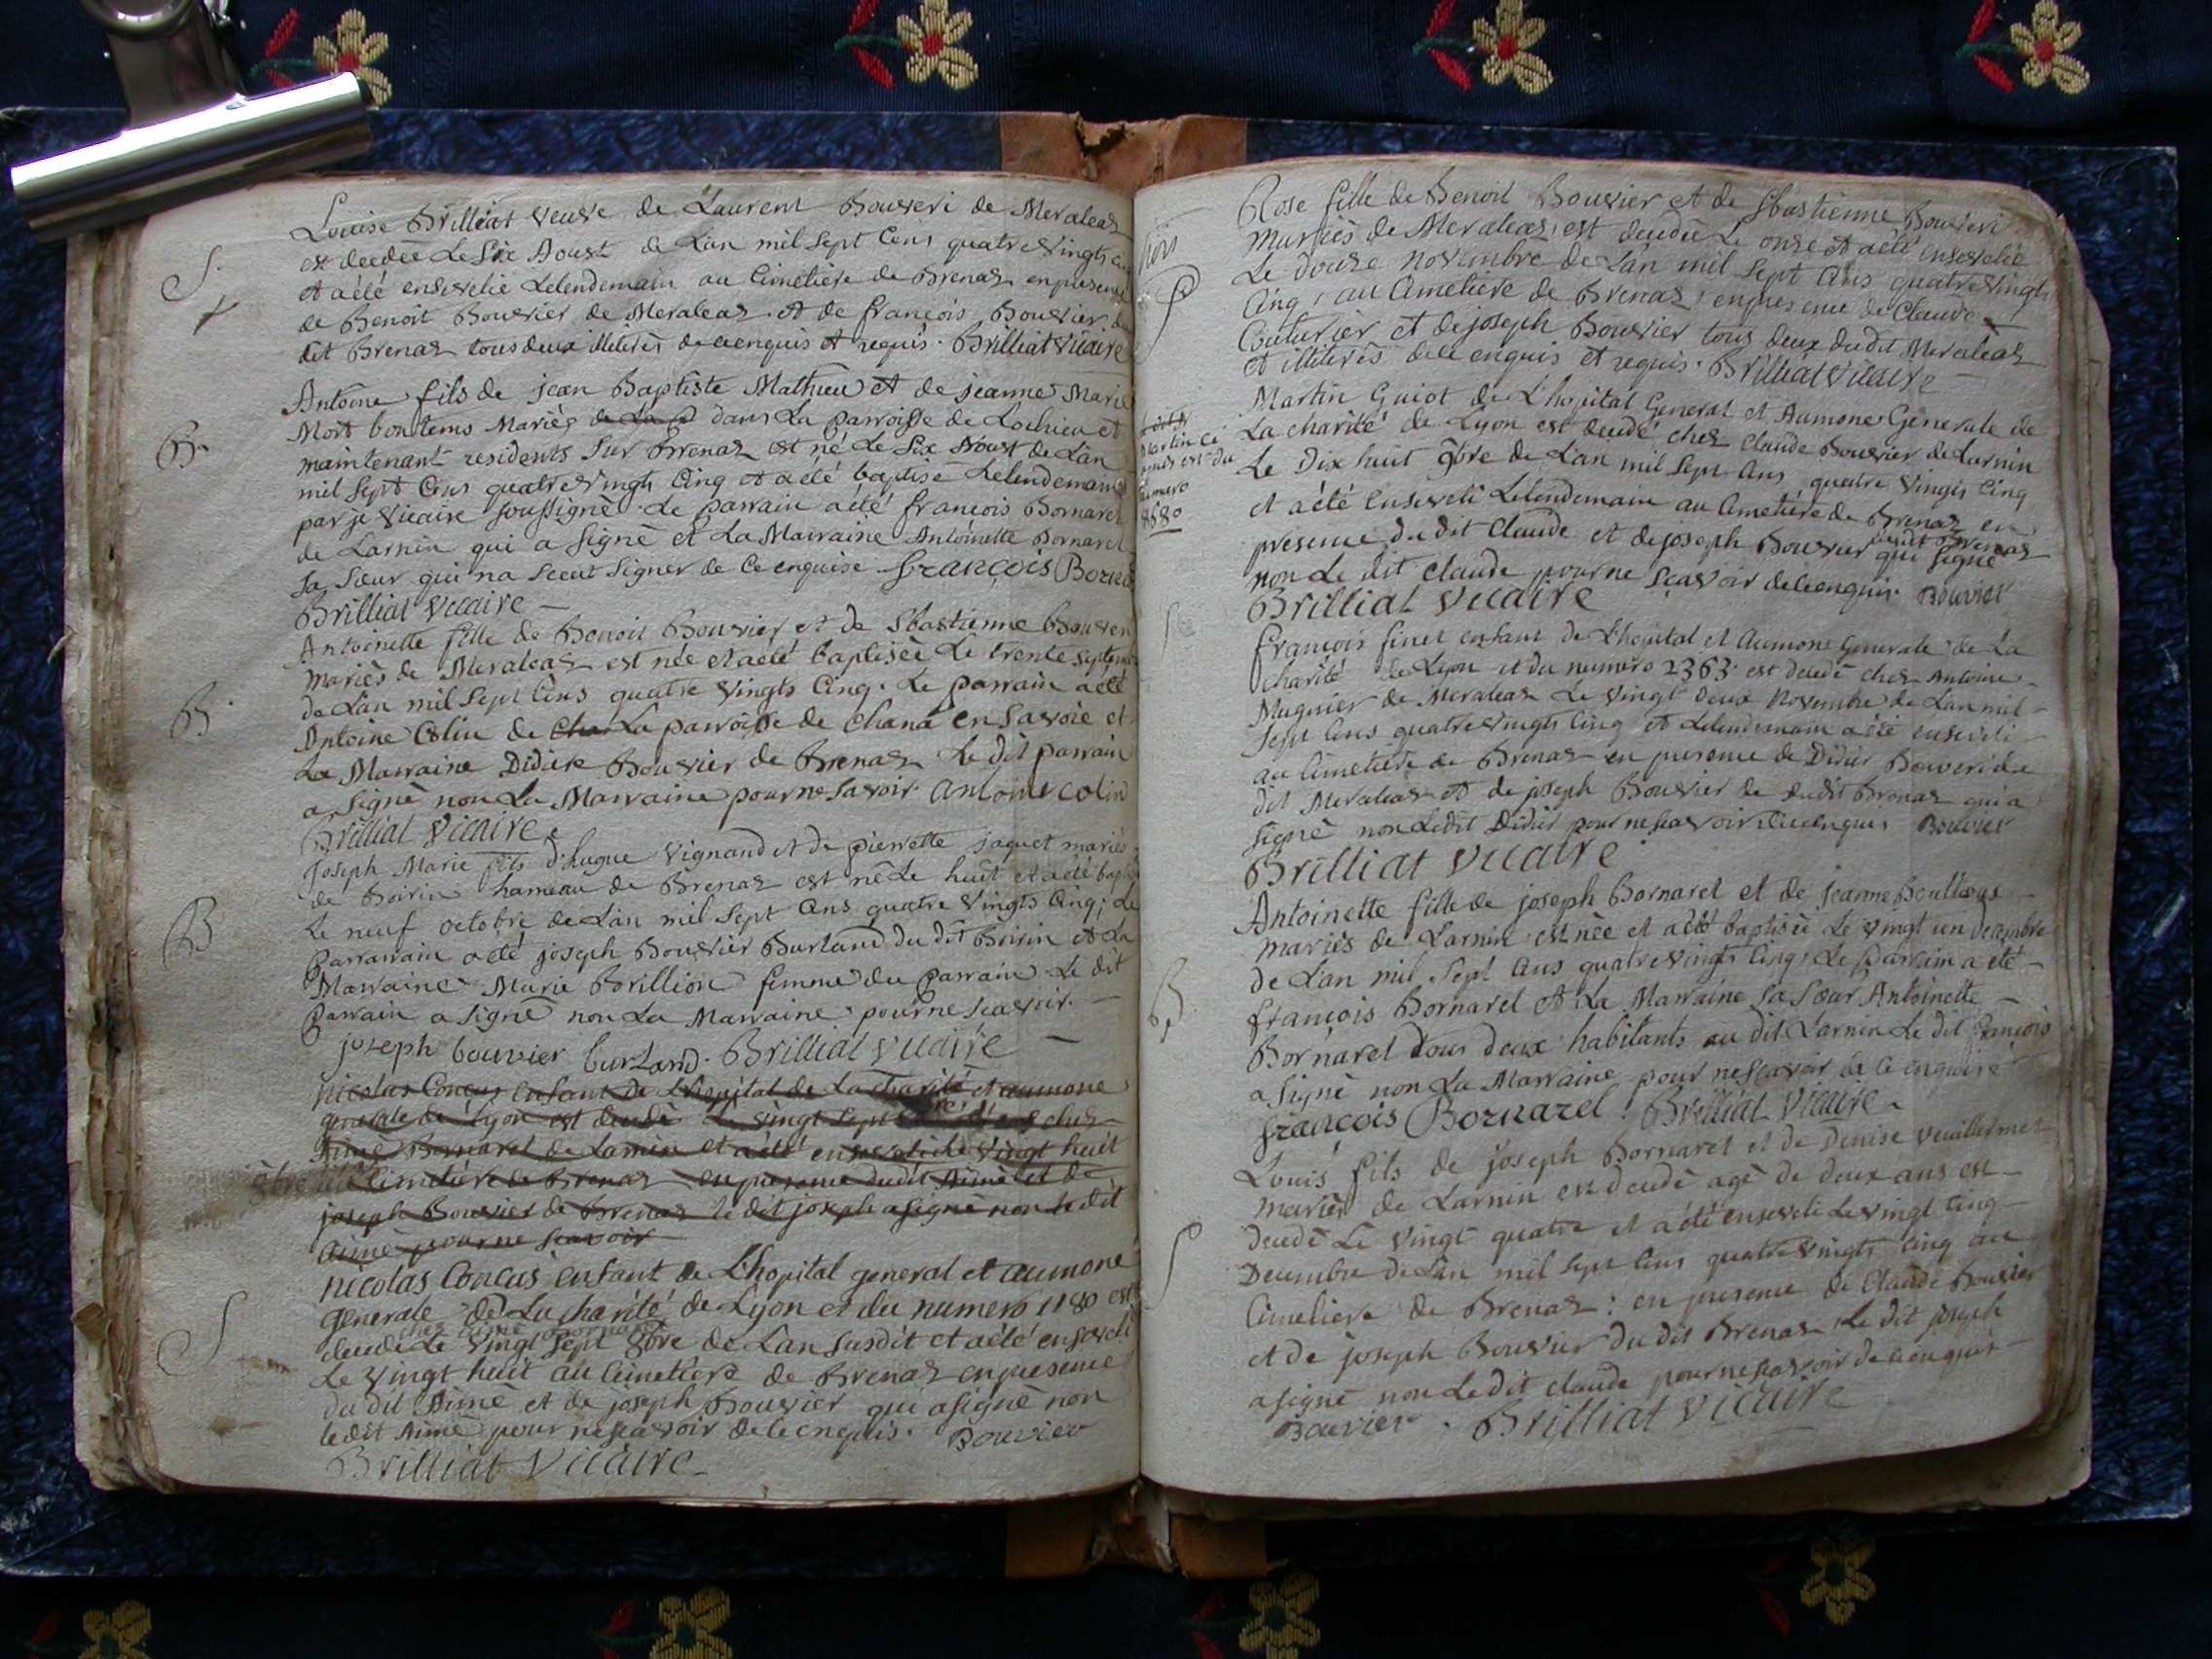 Louise Brilliat veuve de Laurent Bouveri de Meraleaz
est decedée Le Six Aoust de L'an mil sept Cens quatre vingts
S. et a été ensevelie Lelendemain au Cimetiere de Brenaz en presence
de Benoit Bouvier de Meraleaz et de françois Bouvier
dit Brenaz tous deux illiterés de ce enquis et requis. Brilliat vicaire
Antoine fils de jean Baptiste Mathieu et de jeanne Marie
Mort bontems Mariés dans La parroisse de Lochieu et
B. maintenant residents sur Brenaz est né Le Six Aoust de L'an
mil sept Cens quatre vingts Cinq et a été baptisé Lelendemain
par je vicaire soussigné. Le parrain a été francois Bornarel
de Larnin qui a signé et La Marraine Antoinette Bornarel
sa sœur qui na sceut signer de ce enquise françois
Brilliat vicaire
Antoinette fille de Benoit Bouvier et de Sbastienne
mariés de Meraleaz est née et a été baptisée Le trente
B. de L'an mil sept Cens quatre vingts Cinq. Le parrain a été
Antoine Colin de La parroisse de Chana en Savoie et
La Marraine Didiere Bouvier de Brenaz Le dit parrain
a signé non La Marraine pour ne savoir antoine colin
Brilliat vicaire.
Joseph Marie fils d'hugue Vignand et de pierrette jaquet mariés
de Boirin hameau de Brenaz est né Le huit et a été
B Le neuf octobre de L'an mil sept Cens quatre vingts Cinq; Le
parrarain a été joseph Bouvier Burland du dit Boirin et La
Marraine Marie Borillion femme du parrain Le dit
parrain a signé non La Marraine pour ne scavoir.
joseph bouvier burland. Brilliat vicaire
nicolas Concus enfant de L'hopital de La charité et aumone
generale de Lyon est decedé Le vingt sept chez
Aimé Bornarel de Larnin et a été enseveli Le vingt huit
Cimetiere de Brenaz en presence du dit Aimé et de
joseph Bouvier de Brenaz le dit joseph a signé non le dit
aimé pour ne scavoir
nicolas Concus enfant de L'hopital general et aumone
generale de La charité de Lyon et du numero 1180 est
S decedé Le vingt sept 8bre de L'an susdit et a été enseveli
Le vingt huit au Cimetiere de Brenaz en presence
du dit Aimé et de joseph Bouvier qui a signé non
ledit Aimé pour ne scavoir de ce enquis. Bouvier
Brilliat vicaire
Rose fille de Benoit Bouvier et de Sbastienne Bouveri
Mariés de Meraleaz, est decedée Le onze et a été ensevelie
Le douze novembre de L'an mil sept Cens quatre vingts
Cinq, au Cimetiere de Brenaz, en presence de Claude
Couturier et de joseph Bouvier tous deux du dit Meraleaz
et illiterés de ce enquis et requis. Brilliat vicaire
Martin Guiot de L'hopital General et Aumone Generale de
La charité de Lyon est decedé chez Claude Bouvier de Larnin
Martin ci
est du
numero
8580
Le Dix huit 9bre de L'an mil sept Cens quatre vingts Cinq
et a été enseveli Lelendemain au Cimetiere de Brenaz en
presence du dit Claude et de joseph Bouvier dudit Brenaz qui signé
non Le dit Claude pour ne sçavoir de ce enquis. Bouvier
Brilliat vicaire
francois finet enfant de L'hopital et aumone Generale de La
charité de Lyon et du numero 2363 est decedé chez Antoine
Mugnier de Meraleaz Le vingt deux Novembre de L'an mil
sept Cens quatre vingts Cinq et Lelendemain a été enseveli
au Cimetiere de Brenaz en presence de Didier Bouveri de
dit Meraleaz et de joseph Bouvier de dudit Brenaz qui a
signé non Ledit Didier pour ne scavoir de ce enquis Bouvier
Brilliat vicaire
Antoinette fille de joseph Bornarel et de jeanne
mariés de Larnin est née et a été baptisée Le vingt un Decembre
B. de L'an mil sept Cens quatre vingts Cinq. Le parrain a été
françois Bornarel et La Marraine sa sœur Antoinette
Bornarel tous deux habitants au dit Larnin Le dit françois
a signé non La Marraine pour ne scavoir de ce enquise
françois Bornarel. Brilliat vicaire.
Louis fils de joseph Bornarel et de Denise vuillermet
mariés de Larnin est decedé agé de deux ans est
S decedé Le vingt quatre et a été enseveli Le vingt Cinq
Decembre de L'an mil sept Cens quatre vingts Cinq au
Cimetiere de Brenaz: en presence de Claude Bouvier
et de joseph Bouvier du dit Brenaz Le dit joseph
a signé non Le dit claude pour ne scavoir de ce enquis
Bouvier. Brilliat vicaire